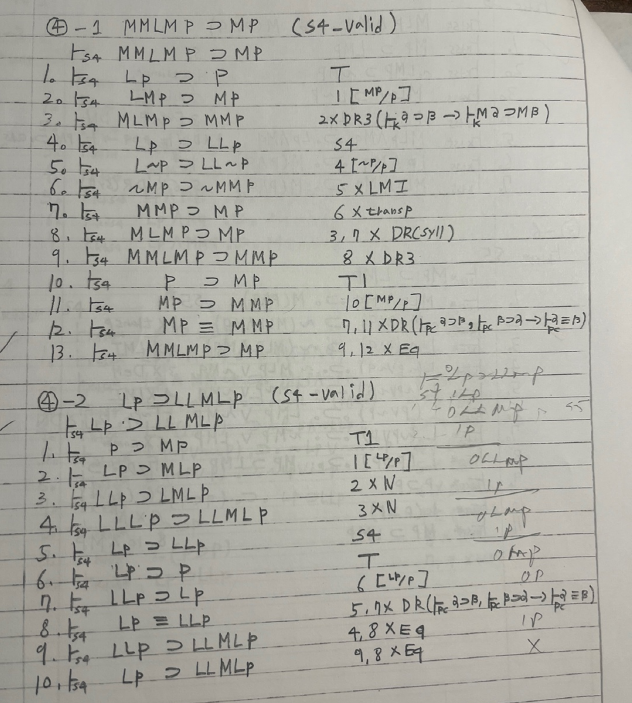 ④-1 MMLMP ⊃ MP (S4-valid)
⊢S4 MMLMP ⊃ MP
1. ⊢S4 Lp ⊃ P T
2. ⊢S4 LMP ⊃ MP 1[MP/P]
3. ⊢S4 MLMP ⊃ MMP 2×DR3(⊢K α⊃β → ⊢K Mα⊃Mβ)
4. ⊢S4 Lp ⊃ LLp S4
5. ⊢S4 L~p ⊃ LL~p 4[~P/P]
6. ⊢S4 ~MP ⊃ ~MMP 5×LMI
7. ⊢S4 MMP ⊃ MP 6×transp
8. ⊢S4 MLMP ⊃ MP 3,7 × DR(syll)
9. ⊢S4 MMLMP ⊃ MMP 8 × DR3
10. ⊢S4 P ⊃ MP T1
11. ⊢S4 MP ⊃ MMP 10[MP/P]
12. ⊢S4 MP ≡ MMP 7,11×DR(⊢PC α⊃β, ⊢PC β⊃α → ⊢PC α≡β)
13. ⊢S4 MMLMP ⊃ MP 9,12 × Eq
④-2 Lp ⊃ LLMLp (S4-valid)
⊢S4 Lp ⊃ LLMLp
1. ⊢S4 P ⊃ MP T1
2. ⊢S4 LP ⊃ MLP 1[LP/P]
3. ⊢S4 LLP ⊃ LMLP 2×N
4. ⊢S4 LLLP ⊃ LLMLP 3×N
5. ⊢S4 Lp ⊃ LLp S4
6. ⊢S4 Lp ⊃ P T
7. ⊢S4 LLp ⊃ Lp 6[LP/P]
8. ⊢S4 Lp ≡ LLp 5,7×DR(⊢PC α⊃β, ⊢PC β⊃α → ⊢PC α≡β)
9. ⊢S4 LLp ⊃ LLMLp 4,8×Eq
10. ⊢S4 Lp ⊃ LLMLp 9,8×Eq